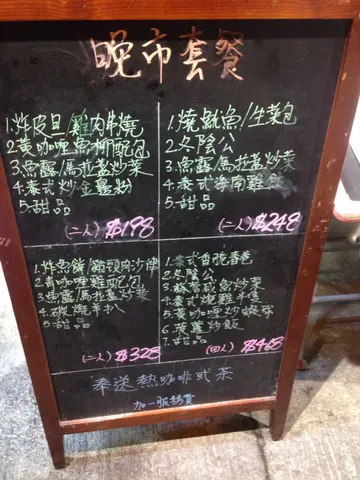 晚市套餐
1.炸皮旦/雞肉串燒
2.黃咖喱魚柳配包
3.魚露/馬拉盞炒菜
4.泰式炒金邊粉
5.甜品
(二人) $198
1.燒魷魚/生菜包
2.冬陰公
3.魚露/馬拉盞炒菜
4.泰式海南雞飯
5.甜品
(二人) $248
1.炸魚餅/豬頸肉沙律
2.青咖喱雞配包
3.魚露/馬拉盞炒菜
4.碳燒羊扒
5.甜品
(二人) $328
1.泰式香脆
2.冬陰公
炒菜
4.泰式燒雞半隻
5.黃咖喱炒
6.菠蘿炒飯
7.甜品
(四人) $468
奉送熱咖啡或茶
加一服務費